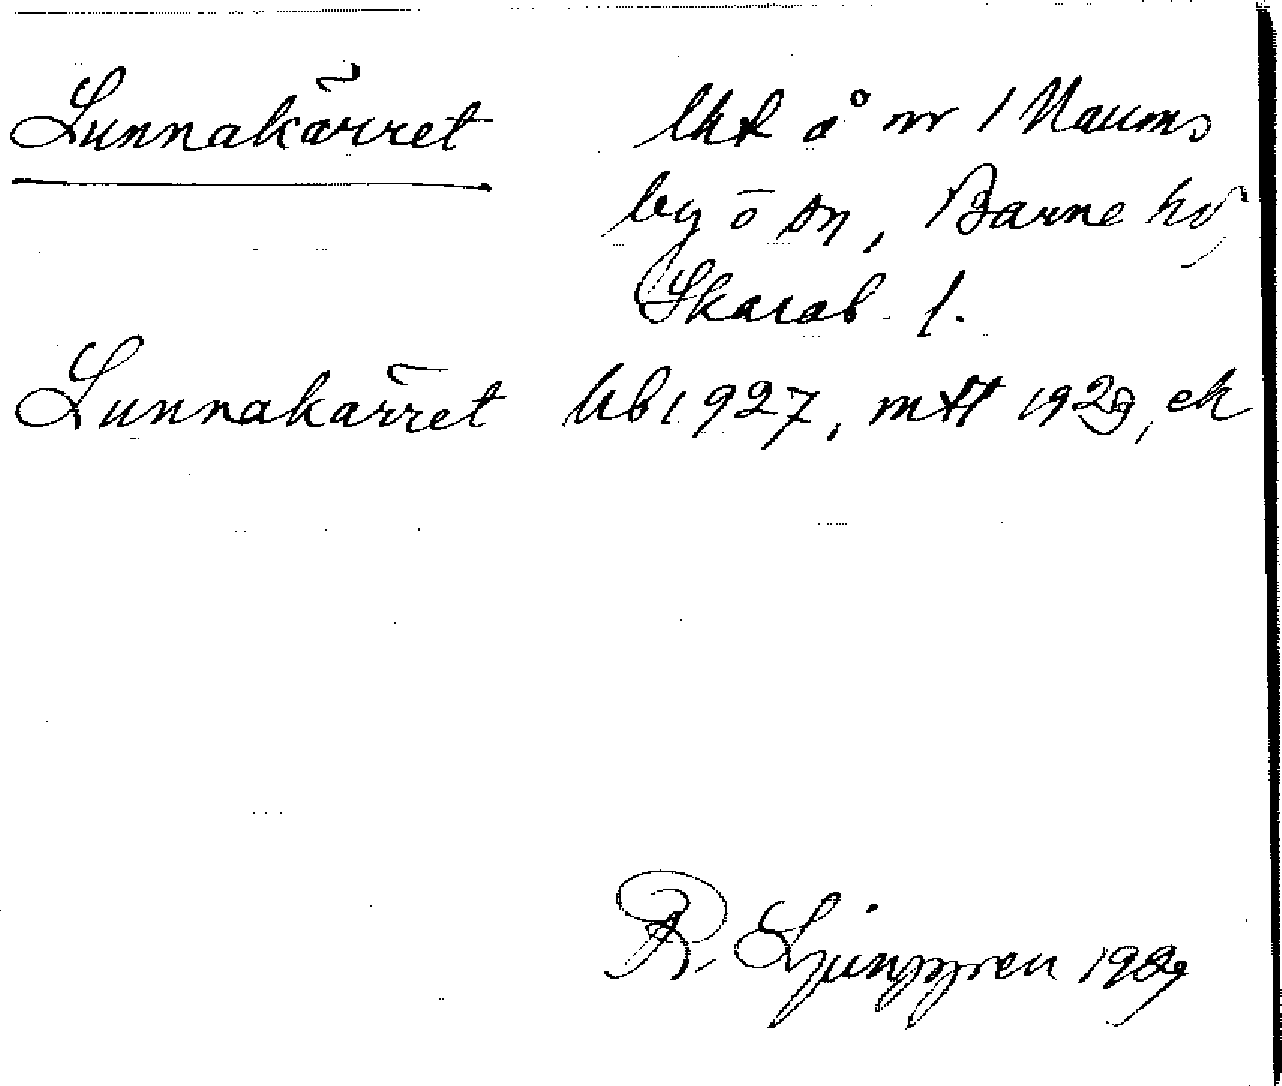 Lunnakärret lht å nr 1 Naums
by ö sn, Barne hd,
Skarab. l.
Lunnakärret hb 1927, mtt 1929, ek
R. Ljunggren 1929